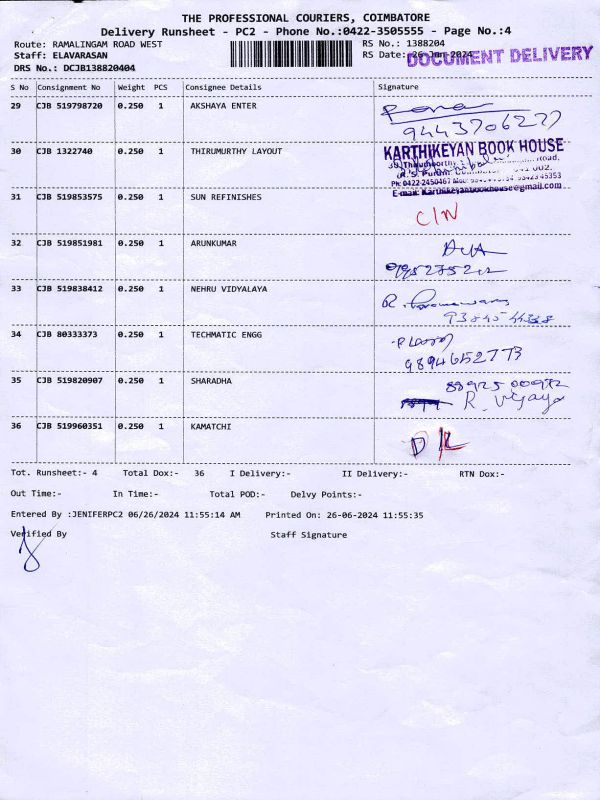 THE PROFESSIONAL COURIERS, COIMBATORE
Delivery Runsheet - PC2 - Phone No.:0422-3505555 - Page No.:4
Route: RAMALINGAM ROAD WEST RS No.: 1388204
Staff: ELAVARASAN RS Date: 26-Jun-2024
DOCUMENT DELIVERY
DRS No.: DCJB138820404
S No Consignment No Weight PCS Consignee Details Signature
29 CJB 519798720 0.250 1 AKSHAYA ENTER
9443706277
30 CJB 1322740 0.250 1 THIRUMURTHY LAYOUT
KARTHIKEYAN BOOK HOUSE
Road,
002.
Ph: 0422-2450467
E-mail: Karthikeyanbookhouse@gmail.com
31 CJB 519853575 0.250 1 SUN REFINISHES
C/N
32 CJB 519851981 0.250 1 ARUNKUMAR
33 CJB 519838412 0.250 1 NEHRU VIDYALAYA
R.
34 CJB 80333373 0.250 1 TECHMATIC ENGG
9894652773
35 CJB 519820907 0.250 1 SHARADHA
R. Vijaya
36 CJB 519960351 0.250 1 KAMATCHI
D/L
Tot. Runsheet:- 4 Total Dox:- 36 I Delivery:- II Delivery:- RTN Dox:-
Out Time:- In Time:- Total POD:- Delvy Points:-
Entered By :JENIFERPC2 06/26/2024 11:55:14 AM Printed On: 26-06-2024 11:55:35
Verified By Staff Signature